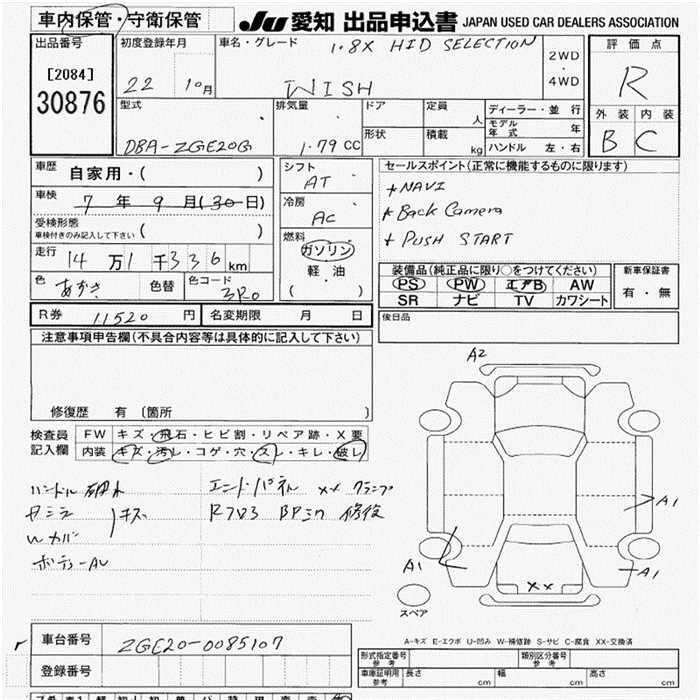 車内保管・守衛保管
JU 愛知 出品申込書 JAPAN USED CAR DEALERS ASSOCIATION
出品番号
[2084]
30876
初度登録年月
22 10月
車名・グレード
1.8X HID SELECTION
WISH
2WD
・
4WD
評価点
R
外装 内装
B C
型式
DBA-ZGE20G
排気量
1.79 CC
ドア
形状
定員
人
積載
kg
ディーラー・並行
モデル年式 年
ハンドル 左・右
車歴 自家用・( )
車検 7年 9月(30日)
受検形態
車検付きのみ記入して下さい ( )
走行 14万1千336km
色 色替 色コード 3R0
シフト
AT
冷房
AC
燃料
ガソリン
軽・油
( )
セールスポイント(正常に機能するものに限ります)
*NAVI
*Back Camera
*PUSH START
装備品(純正品に限り○をつけてください)
PS PW エアB AW
SR ナビ TV カワシート
新車保証書
有・無
R券 11520 円 名変期限 月 日
後日品
注意事項申告欄(不具合内容等は具体的に記入して下さい)
修復歴 有 〔箇所 〕
検査員
記入欄
FW キズ・飛石・ヒビ割・リペア跡・X要
内装 キズ・汚レ・コゲ・穴・スレ・キレ・破レ
ハンドル 破れ
キズ
エンドパネル XX クランプ
修復
A2
A1
A1
A1
XX
スペア
A-キズ E-エクボ U-凹み W-補修跡 S-サビ C-腐食 XX-交換済
車台番号 ZGE20-0085107
登録番号
形式指定番号
参考
類別区分番号
参考
車庫証明用
参考
長さ cm 幅 cm 高さ cm